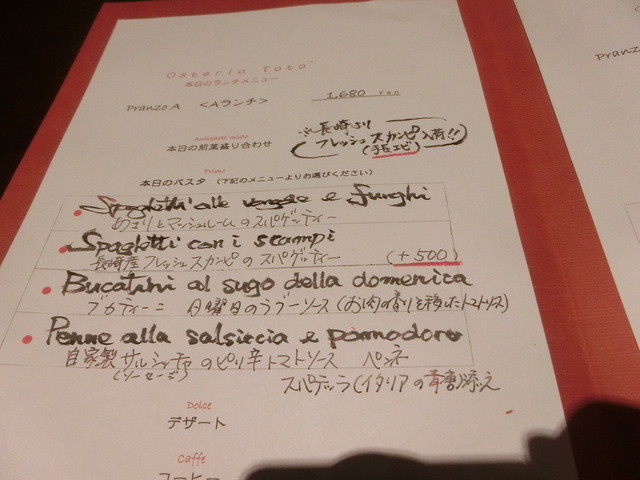 Osteria Toto'
本日のランチメニュー
Pranzo A <Aランチ> 1,680 yen
Antipasto misto
本日の前菜盛り合わせ
※長崎より
フレッシュスカンピ入荷!!
(手長エビ)
Primo
本日のパスタ (下記のメニューよりお選びください)
Spaghetti alle vongole e funghi
あさりとマッシュルームのスパゲッティー
Spaghetti con i scampi
長崎産フレッシュスカンピのスパゲッティー (+500)
Bucatini al sugo della domenica
ブカティーニ 日曜日のラグーソース (お肉の香りを移したトマトソース)
Penne alla salsiccia e pomodoro
自家製サルシッチャのピリ辛トマトソース ペンネ
(ソーセージ)
(イタリアの 添え
Dolce
デザート
Caffe
コーヒー
Pranzo